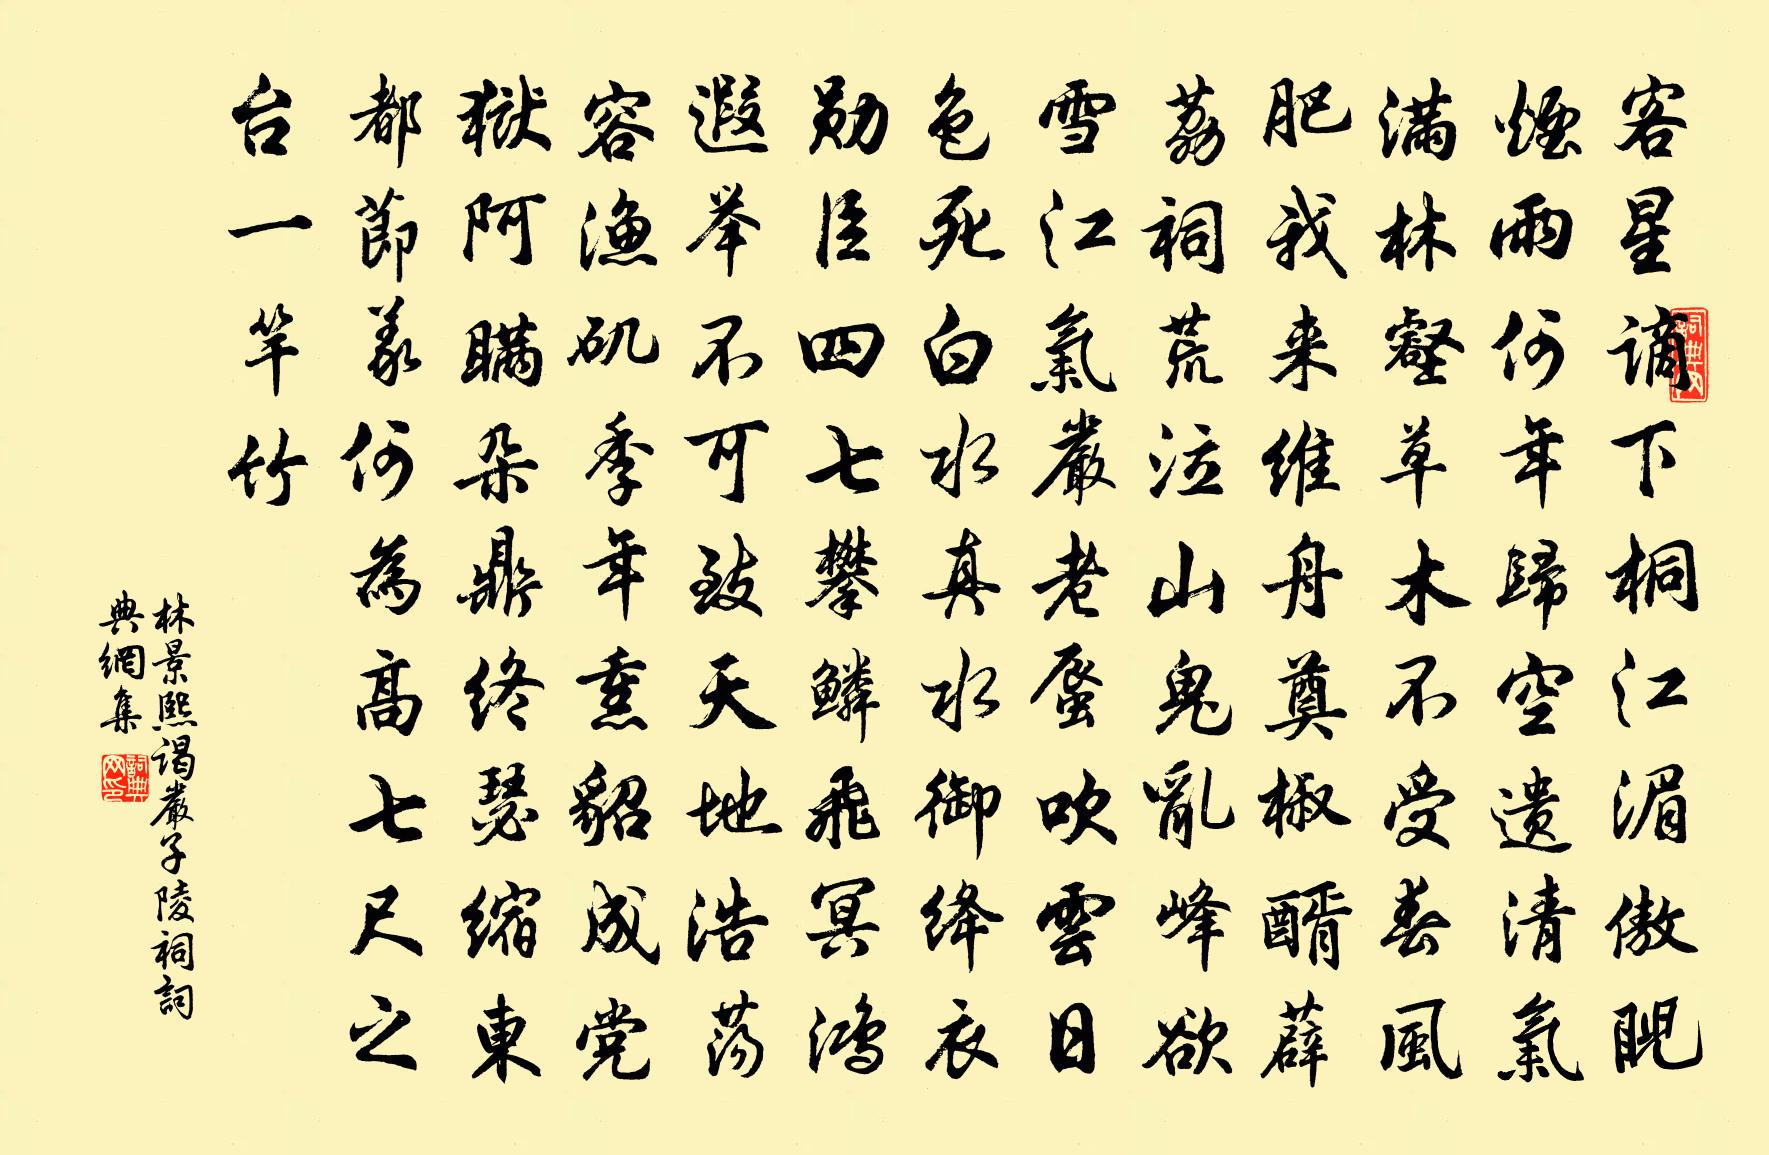 客星謫下桐江湄傲睨
煙雨何年歸空遺清氣
滿林壑草木不受春風
肥我来维舟奠椒醑薜
荔祠荒泣山鬼亂峰欲
雪江氣嚴老蜃吹雲日
色死白水真水御绛衣
勛臣四七攀鳞飛冥鴻
遐举不可致天地浩荡
容漁矶季年熏貂成党
獄阿瞒朵鼎终瑟缩東
都節義何為高七尺之
台一竿竹
林景熙谒嚴子陵祠詞
典網集
詞典网
詞典网印